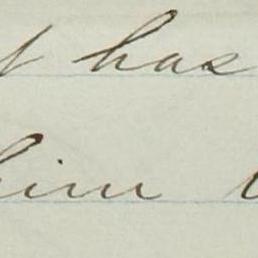 has
him